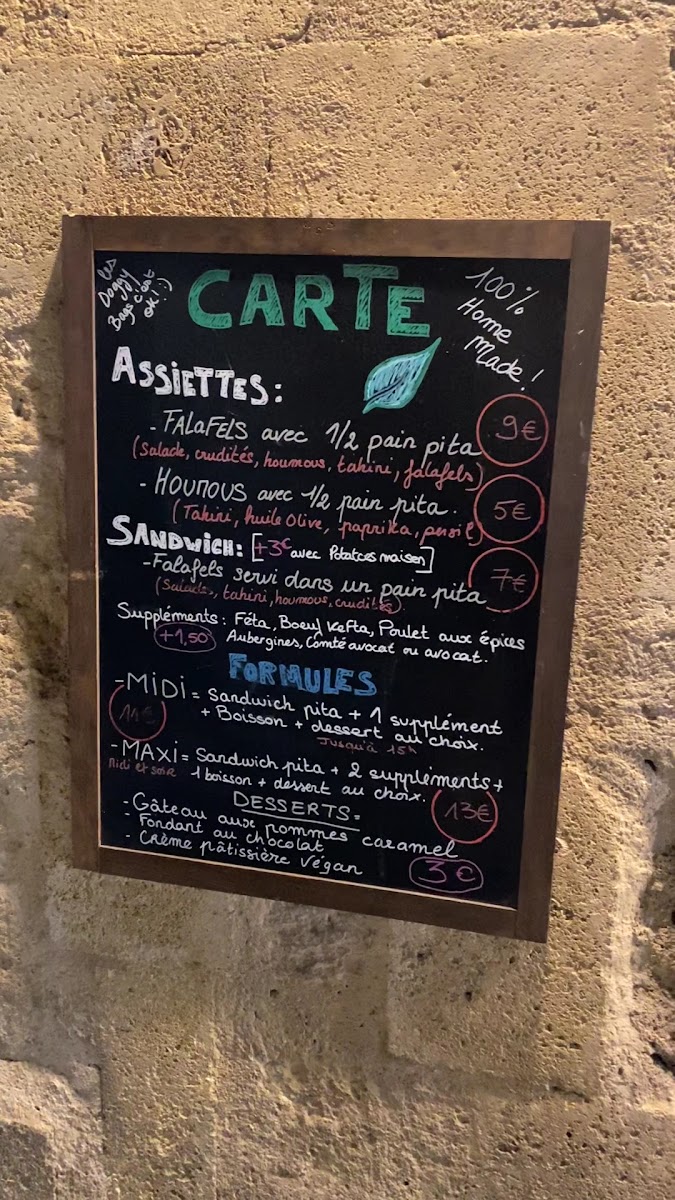 Les
Doggy
Bags c'est
ok! :)
CARTE
100%
Home
Made!
ASSIETTES:
- FALAFELS avec 1/2 pain pita 9€
(Salade, crudités, houmous, tahini, falafels)
- HOUMOUS avec 1/2 pain pita. 5€
(Tahini, huile olive, paprika, persil)
SANDWICH: [+3€ avec Potatoes maison]
- Falafels servi dans un pain pita 7€
(Salades, tahini, houmous, crudités)
Suppléments: Féta, Boeuf Kefta, Poulet aux épices
+1,50 Aubergines, Comté avocat ou avocat.
FORMULES
- MIDI = Sandwich pita + 1 supplément
11€ + Boisson + dessert au choix.
Jusqu'à 15h
- MAXI = Sandwich pita + 2 suppléments +
Midi et soir 1 boisson + dessert au choix. 13€
DESSERTS =
- Gâteau aux pommes caramel
- Fondant au chocolat
- Crème pâtissière végan 3€